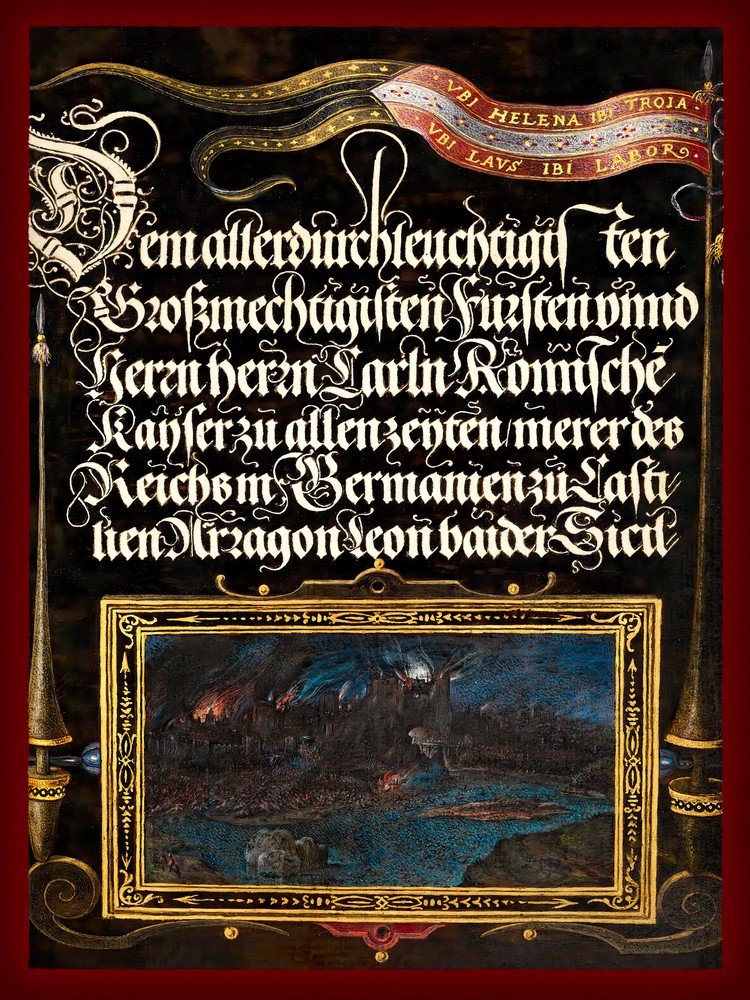 VBI HELENA IBI TROIA
VBI LAVS IBI LABOR
Dem allerdurchleuchtigisten
Großmechtigisten Fursten vnnd
Herrn herrn Carln Römische
Kayser zu allen zeyten / merer des
Reichs in Germanien zu Casti
lien Arragon Leon baider Sicil